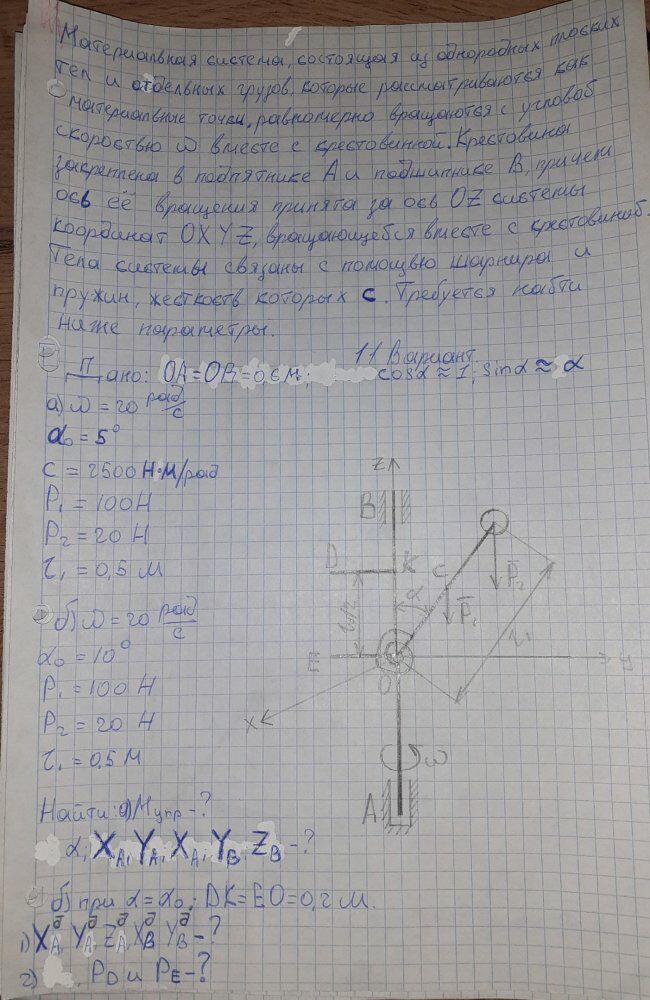 Материальная система, состоящая из однородных плоских
тел и отдельных грузов, которые рассматриваются как
материальные точки, равномерно вращаются с угловой
скоростью ω вместе с крестовиной. Крестовина
закреплена в подпятнике A и подшипнике B, причем
ось её вращения принята за ось OZ системы
координат OXYZ, вращающейся вместе с крестовиной.
Тела системы связаны с помощью шарнира и
пружин, жесткость которых c. Требуется найти
ниже параметры.
11 Вариант
Дано: OA=OB=0,6м; cosα≈1; sinα≈α
а) ω = 20 рад/с
α₀ = 5°
c = 2500 Н·м/рад
P₁ = 100 Н
P₂ = 20 Н
τ₁ = 0,5 м
б) ω = 20 рад/с
α₀ = 10°
P₁ = 100 Н
P₂ = 20 Н
τ₁ = 0.5 м
z
B
D
K
c
α
P̄₂
P̄₁
τ₁
E
O
y
x
ω
A
Найти: а) Mупр -?
α, XA, YA, XA, YB, ZB -?
б) при α = α₀; DK=EO=0,2 м.
1) XAᵟ, YAᵟ, ZAᵟ, XBᵟ, YBᵟ -?
2) PD и PE -?